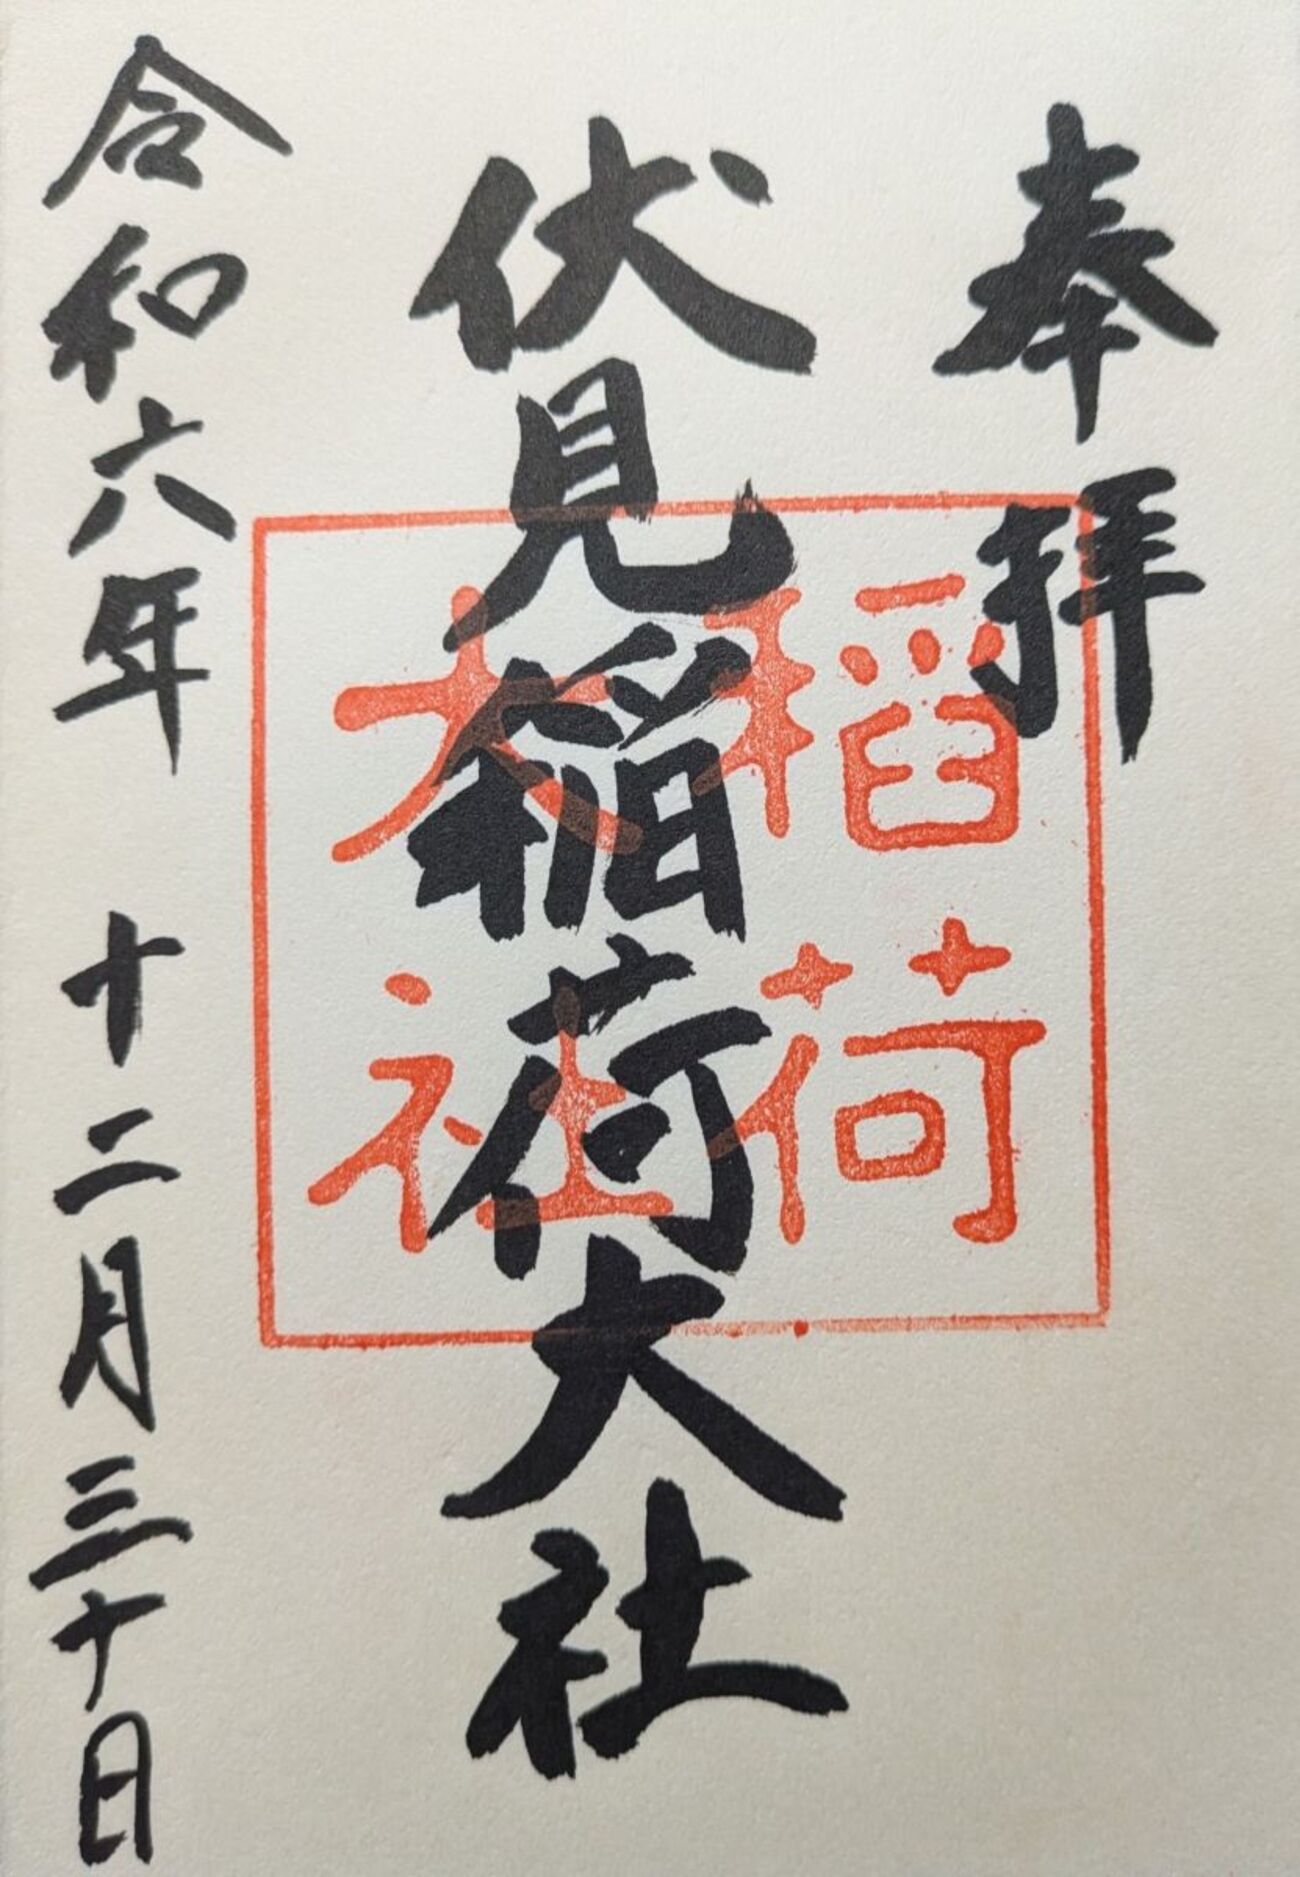 奉拝
伏見稲荷大社
稲荷
大社
令和六年 十二月三十日